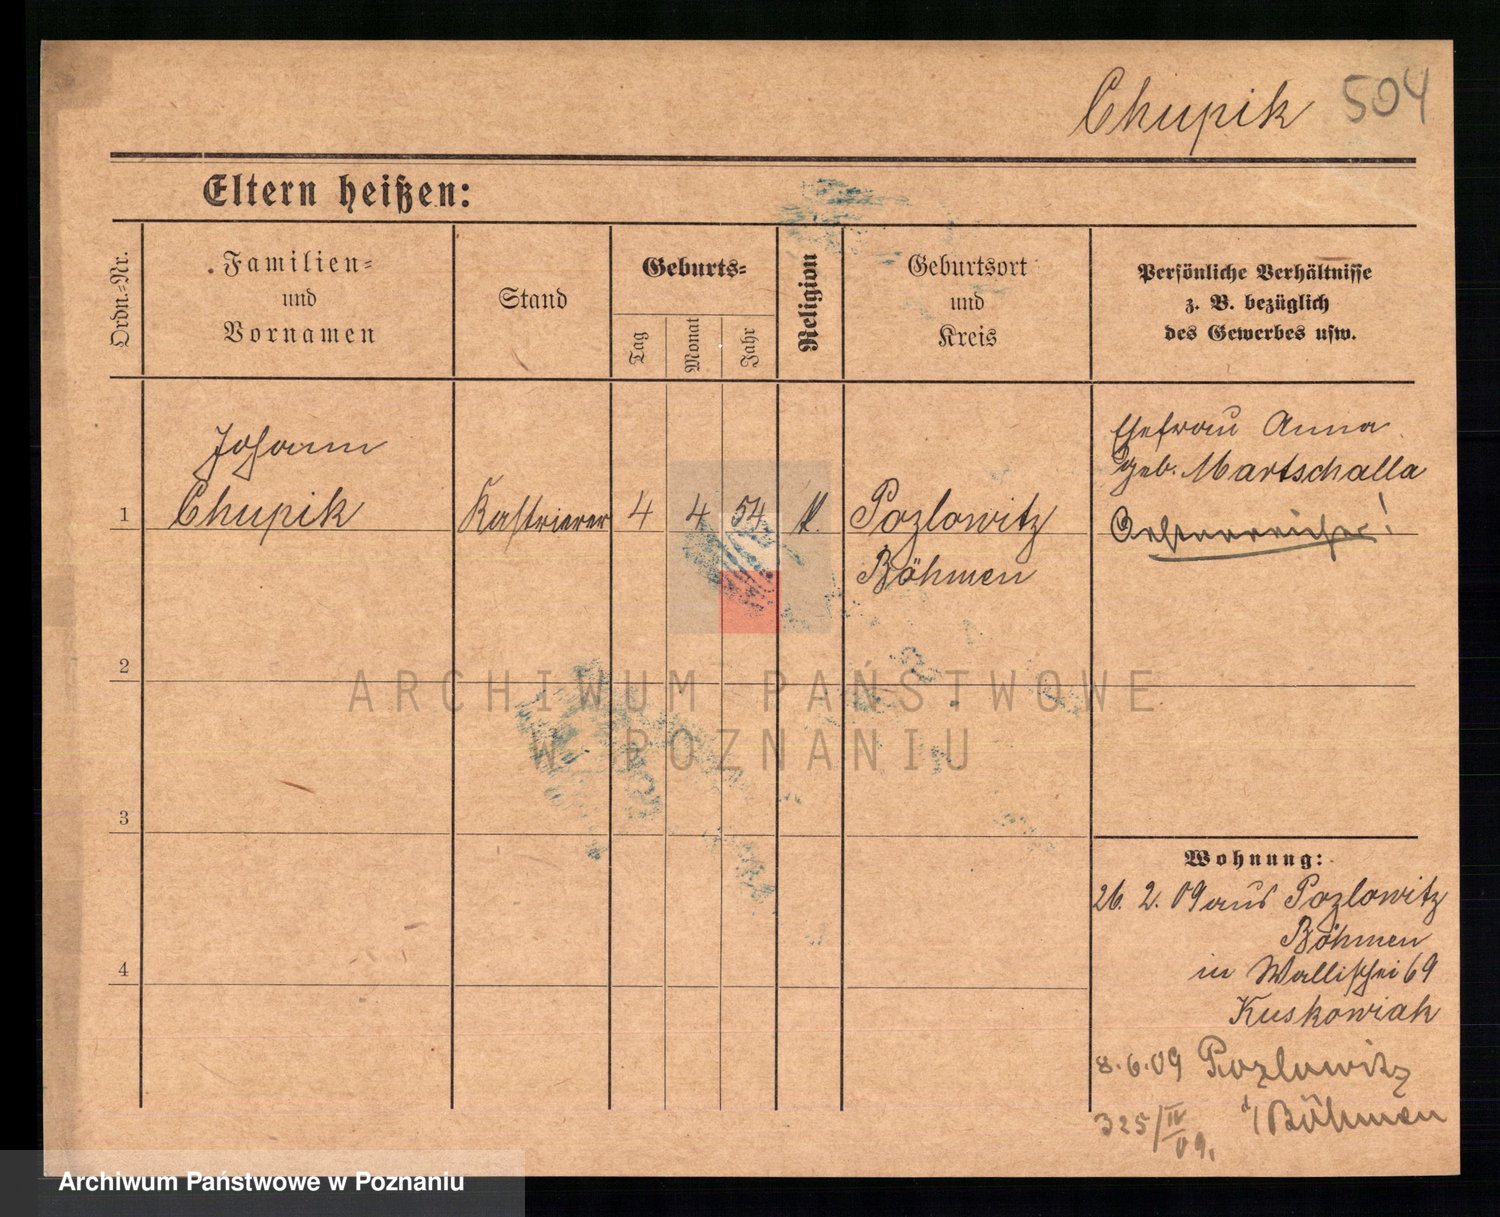 Chupik 504
Eltern heißen:
Ordn.-Nr.
Familien-
und
Vornamen
Stand
Geburts-
Tag
Monat
Jahr
Religion
Geburtsort
und
Kreis
Persönliche Verhältnisse
z. B. bezüglich
des Gewerbes usw.
Johann
1 Chupik Kastrierer 4 4 54 k. Pozlowitz
Böhmen
Ehefrau Anna
geb. Martschalla
Oesterreicher!
2
3
4
Wohnung:
26. 2. 09 aus Pozlowitz
Böhmen
in Wallischei 69
Kuskowiak
8.6.09 Pozlowitz
i/Böhmen
325/IV
09.
ARCHIWUM PAŃSTWOWE
W POZNANIU
Archiwum Państwowe w Poznaniu